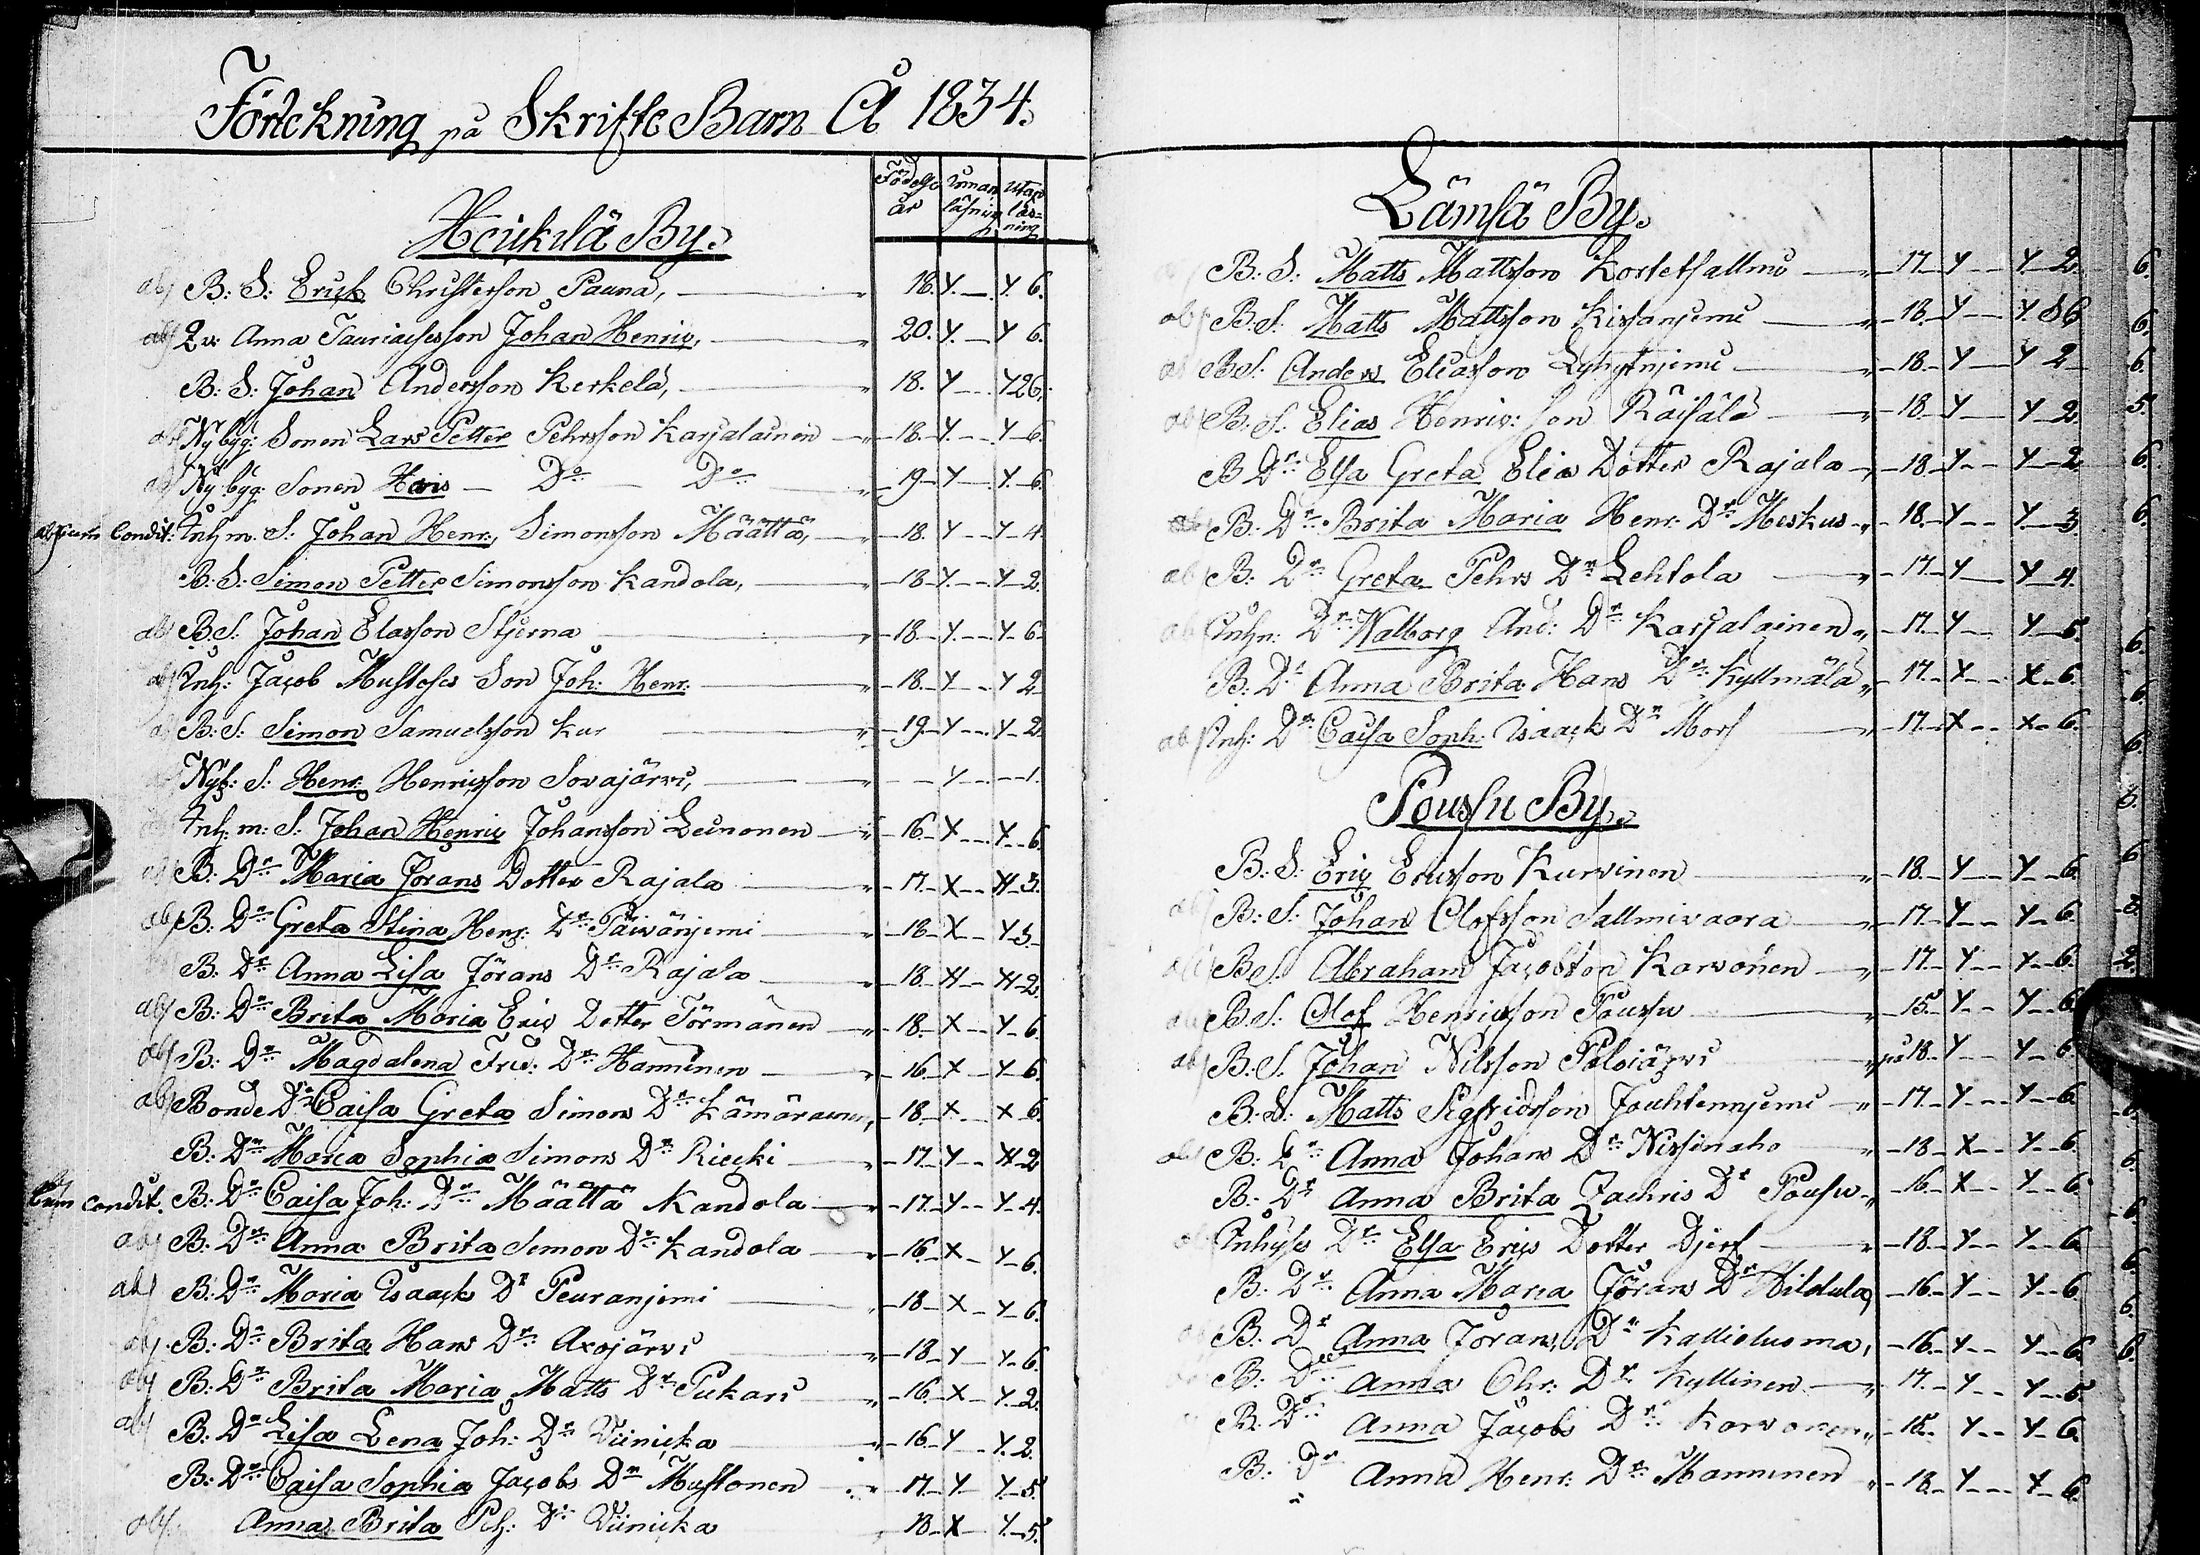 Förtekning på Skrifte Barn År 1834.
Födelse år Innan läsning Utan läsning
Heikkilä By.
abs B: S: Erick Christersson Pauna, 18. Y. Y. 6.
abs Anna Johan Henric, 20. Y. Y 6.
B: S: Johan Andersson Kerkelä, 18. Y Y 26.
abs Nybyg: Sonen Lars Petter Pehrsson Karjalainen 18. Y. Y 6.
abs Nybyg: Sonen Hans Do Do 19 Y Y 6.
abs cum Condit: Inh. m. S. Johan Henr., Simonsson Määttä, 18. Y Y 4.
B: S: Simon Petter Simonsson Kandola, 18 Y Y 2.
abs B.S. Johan Elasson Stjerna 18 Y. Y 6.
abs Inh: Jacob Mustoses Son Joh: Henr: 18. Y Y 2
B: S: Simon Samuelsson Kur 19 Y Y 2.
Nyb: S: Henr. Henricsson Sovajärvi, Y 1.
Inh. m: S: Johan Henric Johansson Leinonen 16 X X 6.
B: Dr Maria Jörans Dotter Rajala 17. X X 3.
abs B: Dr Greta Stina Henr: Dr Päivänjemi 18 X Y 3.
B: Dr Anna Lisa Jörans Dr Rajala 18 X X 2.
abs B: Dr Brita Maria Eric Dotter Törmänen 18. X Y 6.
abs B: Dr Magdalena Fred: Dr Hanninen 16 X Y 6.
abs Bonde Dr Caisa Greta Simons Dr Kämäräinen, 18. X X 6.
B: Dr Maria Sophia Simons Dr Riecki 17. Y X 2
Cum Condit. B: Dr Caisa Joh: Dr Määttä Kandola 17. Y Y 4.
abs B: Dr Anna Brita Semon Dr Kandola 16 X Y 6.
abs B: Dr Maria Isaacks Dr Peuranjemi 18 X Y 6.
abs B: Dr Brita Hans Dr Axojärvi 18 Y Y 6.
abs B: Dr Brita Maria Matts Dr Pukari 16 X Y 2.
abs B: Dr Lisa Lena Joh: Dr Viinicka 16 Y Y 2.
B: Dr Caisa Sophia Jacobs Dr Mustonen 17 Y Y 5.
abs Anna Brita Peh: Dr Viinicka 18 X Y 5.
Lämsä By.
B: S: Matts Mattsson 17 Y Y 2.
abs B: S: Matts Mattsson Kissanjemi 18. Y Y 6
abs B.S. Anders Eliasson Lyhytnjemi 18 Y Y 2
abs B: S. Elias Henric: son Räisälä 18 Y Y 2.
B Dr Elsa Greta Elias Dotter Rajala 18 Y Y 2
abs B: Dr Brita Maria Henr: Dr Meskus 18. Y Y 3
abs B: Dr Greta Pehrs Dr Lehtola 17 Y Y 4.
abs Inhr: Dr Walborg And: Dr Karjalainen 17. Y Y 5.
B: Dr Anna Brita Hans Dr Kyllmälä 17 X X 6.
abs Inh: Dr Caisa Soph. Isaack Dr Mors 17. X X 6.
Poussu By.
B: S: Eric Ericsson Kurvinen 18. Y Y 6.
abs B: S: Johan Olofsson Sallmivaara 17. Y Y 6.
abs B.S. Abraham Jacobson Karvonen 17. Y Y 6.
B.S. Olof Henricsson Poussu 15. Y Y 6
abs B: S. Johan Nilsson Poloiärvi på 18. Y Y 6.
B: S: Matts Sigfridsson Jouhtennjemi 17. Y Y 6.
abs B: Dr Anna Johans Dr Nissinaho 18 X Y 6.
B: Dr Anna Brita Zachris Dr Pousu 16. X Y 6.
Inhyses Dr Elsa Erics Dotter Djerf 18 Y Y 6.
B: Dr Anna Maria Jörans Dr Hildula, 16 Y Y 6.
B: Dr Anna Jörans, Dr Kalliolusma, 16 Y Y 6.
B: Dr Anna Chr: Dr Kyllinen 17. Y Y 5
B: Dr Anna Jacobs Dr Karvonen 18. Y Y 6.
B: Dr Anna Henr: Dr Manninen 18. Y Y 6.